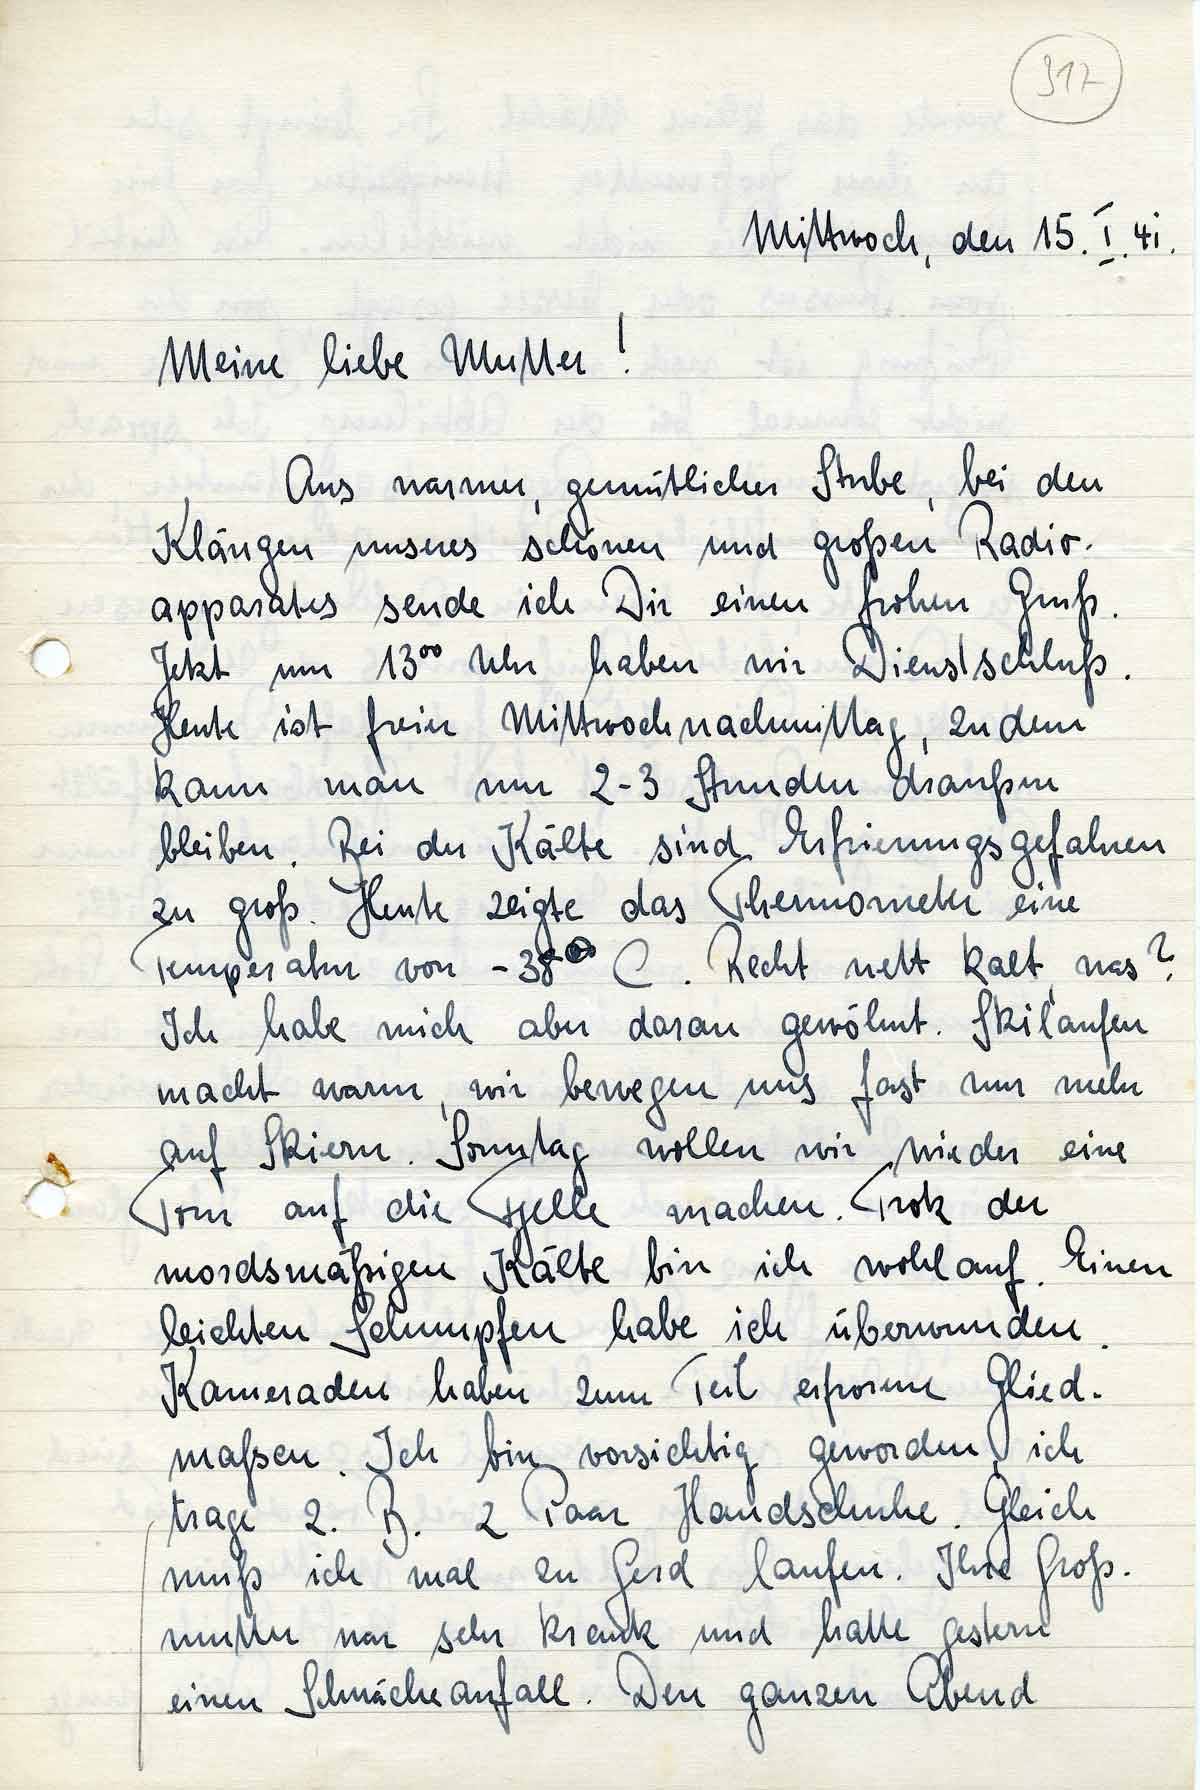 317
Mittwoch, den 15. I. 41.
Meine liebe Mutter!
Aus warmer, gemütlicher Stube, bei den
Klängen unseres schönen und großen Radio-
apparates sende ich Dir einen frohen Gruß.
Jetzt um 13⁰⁰ Uhr haben wir Dienstschluß.
Heute ist freier Mittwochnachmittag, zudem
kann man nur 2-3 Stunden draußen
bleiben. Bei der Kälte sind Erfrierungsgefahren
zu groß. Heute zeigte das Thermometer eine
Temperatur von -38° C. Recht nett kalt, was?
Ich habe mich aber daran gewöhnt. Skilaufen
macht warm, wir bewegen uns fast nur mehr
auf Skiern. Sonntag wollen wir wieder eine
Tour auf die Fjelle machen. Trotz der
mordsmäßigen Kälte bin ich wohlauf. Einen
leichten Schnupfen habe ich überwunden.
Kameraden haben zum Teil erfrorene Glied-
maßen. Ich bin vorsichtig geworden, ich
trage z. B. 2 Paar Handschuhe. Gleich
muß ich mal zu Gerd laufen. Ihre Groß-
mutter war sehr krank und hatte gestern
einen Schwächeanfall. Den ganzen Abend